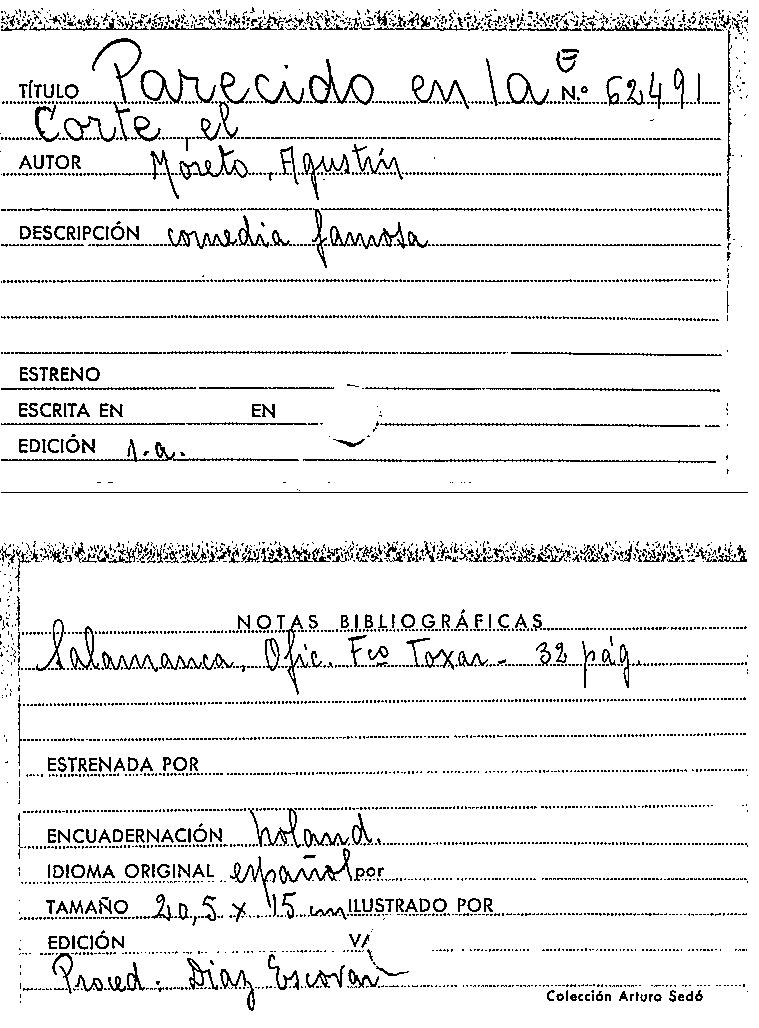 E
TÍTULO Parecido en la N.º 62491
Corte, el
AUTOR Moreto, Agustín
DESCRIPCIÓN comedia famosa
ESTRENO
ESCRITA EN EN
EDICIÓN s.a.
NOTAS BIBLIOGRÁFICAS
Salamanca, Ofic. Fco Toxar - 32 pág.
ESTRENADA POR
ENCUADERNACIÓN holand.
IDIOMA ORIGINAL español por
TAMAÑO 20,5 x 15 cm ILUSTRADO POR
EDICIÓN
Proced. Díaz Escovar
Colección Arturo Sedó